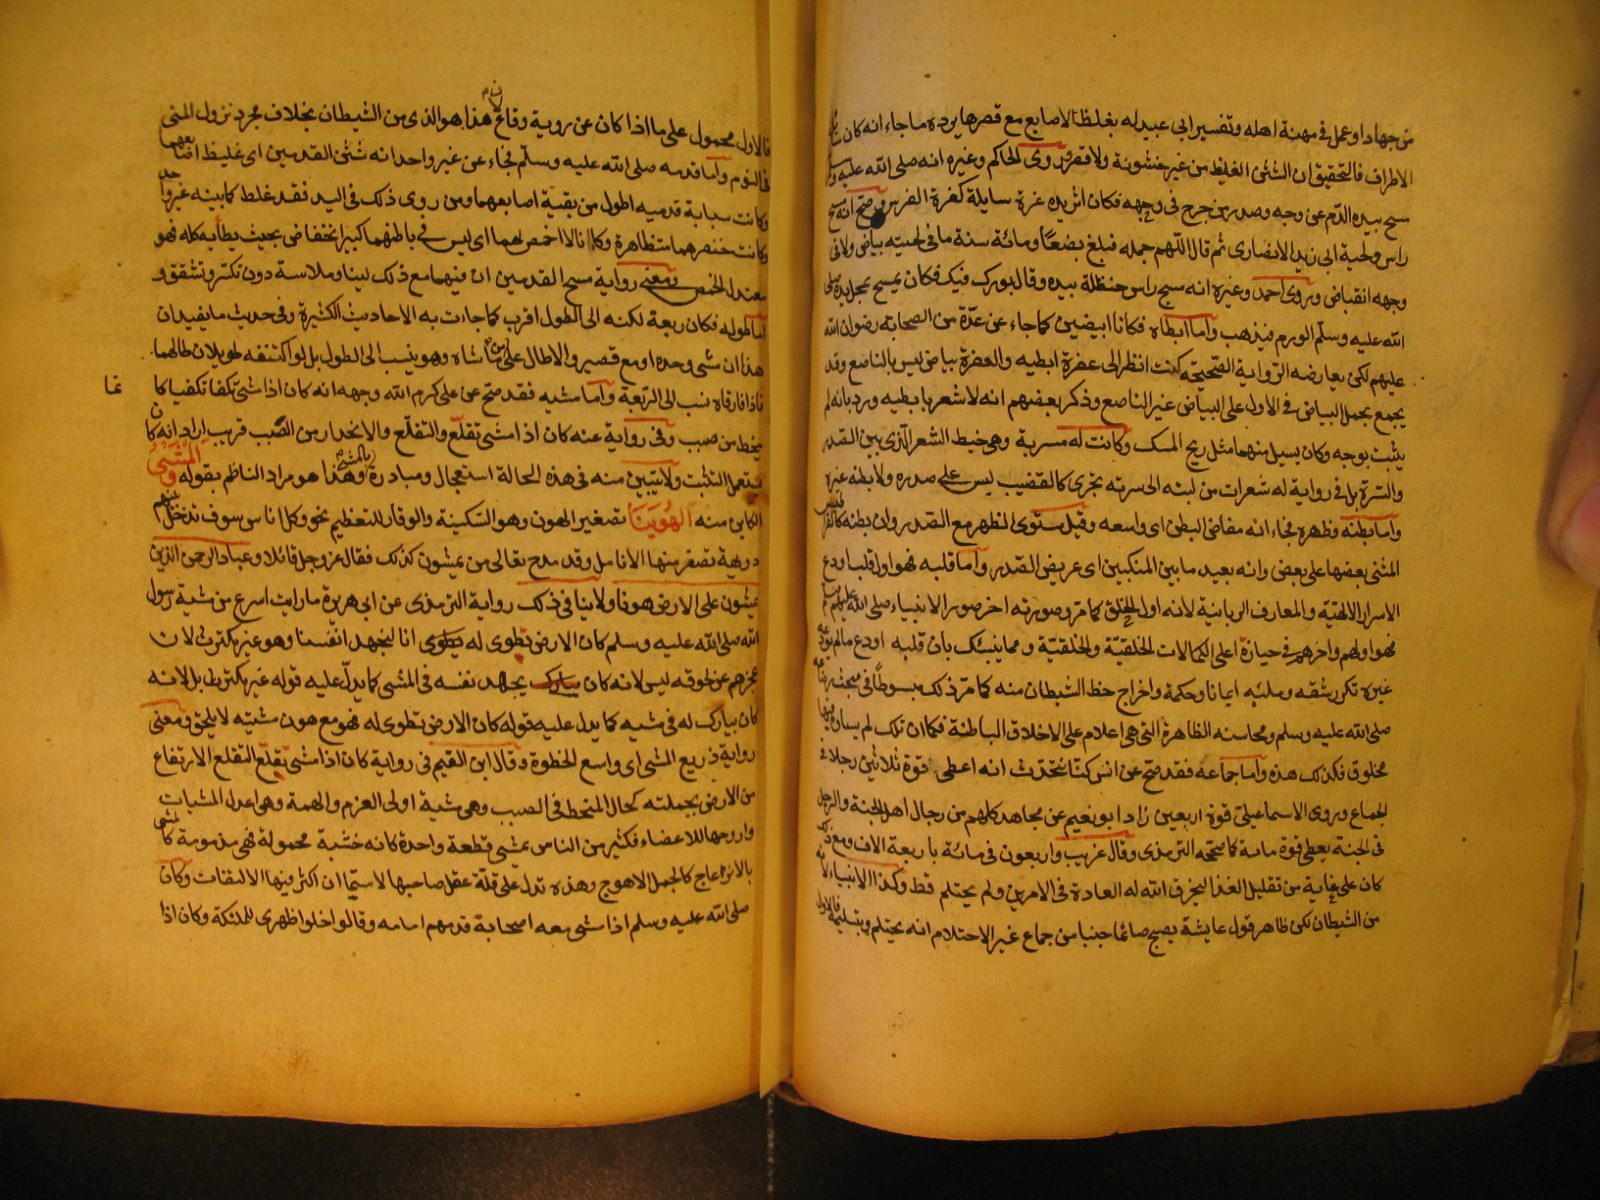 من جهاد او عمل في مهنة اهله وتفسير ابي عبيد له بغلظ الاصابع مع قصرها يرده ما جاء انه كان
الاطراف فالتحقيق ان الشثن الغليظ من غير خشونة ولا قصر وروى الحاكم وغيره انه صلى الله عليه
مسح بيده الدم عن وجه وصدر من جرح في وجهه فكان اثر يده غرة سايلة كغرة الفرس وصح انه مسح
راس ولحية ابي زيد الانصاري ثم قال اللهم جمله فبلغ بضعا ومائة سنة ما في لحيته بياض ولا في
وجهه انقباض وروى احمد وغيره انه مسح راس حنظلة بيده وقال بورك فيك فكان يمسح بمحل يده صلى
الله عليه وسلم الورم فيذهب واما ابطاه فكانا ابيضين كما جاء عن عدة من الصحابة رضوان الله
عليهم لكن يعارضه الرواية الصحيحة كنت انظر الى عفرة ابطيه والعفرة بياض ليس بالناصع وقد
يجمع بحمل البياض في الاول على البياض غير الناصع وذكر بعضهم انه لا شعر بابطيه ورد بانه لم
يثبت بوجه وكان يسيل منهما مثل ريح المسك وكانت له مسربة وهي خيط الشعر الذي بين الصدر
والسرة بل في رواية له شعرات من لبته الى سرته تجري كالقضيب ليس على صدره ولا بطنه غيره
واما بطنه وظهره فجاء انه مفاض البطن اى واسعه وقيل مستوى الظهر مع الصدر وان بطنه كالقراطيس
المثنى بعضها على بعض وانه بعيد ما بين المنكبين اى عريض الصدر واما قلبه فهو اول قلب اودع
الاسرار الالهية والمعارف الربانية لانه اول الخلق كما مر وصورته اخر صور الانبياء صلى الله عليهم
فهو اولهم واخرهم في حيازة اعلى الكمالات الخلقية والخلقية ومما ينبئك بان قلبه اودع ما لم يودعه
غيره تكرر شقه وملئه ايمانا وحكمة واخراج حظ الشيطان منه كما مر ذلك مبسوطا في مبحث رضاعه
صلى الله عليه وسلم ومحاسنه الظاهرة التي هي اعلام على الاخلاق الباطنة فكما ان تلك لم يساوه فيها
مخلوق فكذلك هذه واما جماعه فقد صح عن انس كنا نتحدث انه اعطى قوة ثلاثين رجلا في
الجماع وروى الاسماعيلي قوة اربعين زاد ابو نعيم عن مجاهد كلهم من رجال اهل الجنة والرجل
في الجنة يعطى قوة مائة كما صححه الترمذى وقال غريب واربعون في مائة باربعة الاف ومع ذلك
كان على غاية من تقليل الغذا ليخرق الله له العادة في الامرين ولم يحتلم قط وكذا الانبياء لانه
من الشيطان لكن ظاهر قول عايشة يصبح صائما جنبا من جماع غير الاحتلام انه يحتلم وبتسليمه فالاول
فالاول محمول على ما اذا كان عن روية وقاع هذا هو الذى من الشيطان بخلاف مجرد نزول المنى
في النوم واما قدمه صلى الله عليه وسلم فجاء عن غير واحد انه شثن القدمين اى غليظ اصابعهما
وكانت سبابة قدميه اطول من بقية اصابعهما ومن روى ذلك في اليد فقد غلط كما بينه غير واحد
وكانت خنصرهما متظاهرة وكانا لا اخمص لهما اى ليس في باطنهما كبير انخفاض بحيث يطأ به كله فهو
معتدل الخمص ومعنى رواية مسح القدمين ان فيهما مع ذلك لينا وملاسة دون تكسر وتشقق و
اما طوله فكان ربعة لكنه الى الطول اقرب كما جاءت به الاحاديث الكثيرة وفي حديث ما يفيد ان
هذا ان مشى وحده او مع قصير والا طال على من ماشاه وهو ينسب الى الطول بل لو اكتنفه طويلان طالهما
فاذا فارقاه نسب الى الربعة واما مشيه فقد صح عن على كرم الله وجهه انه كان اذا مشى تكفا تكفيا كانما
ينحط من صبب وفي رواية عنه كان اذا مشى تقلع والتقلع والانحدار من الصبب قريب اراد انه كان
يستعمل التثبت ولا يتبين منه في هذه الحالة استعجال ومبادرة بالمشى وهذا هو مراد الناظم بقوله والمشى
الكاين منه الهوينا تصغير الهون وهو السكينة والوقار للتعظيم نحو وكل اناس سوف تدخل بينهم
دويهة تصفر منها الانامل وقد مدح تعالى من يمشون كذلك فقال عز وجل قائلا وعباد الرحمن الذين
يمشون على الارض هونا ولا ينافي ذلك رواية الترمذى عن ابي هريرة ما رايت اسرع من مشية رسول
الله صلى الله عليه وسلم كان الارض تطوى له انا لنجهد انفسنا وهو غير مكترث لان
عجزهم عن لحوقه ليس لانه كان يجهد نفسه في المشى كما يدل عليه قوله غير مكترث بل لانه
كان يبارك له في مشيه كما يدل عليه قوله كان الارض تطوى له فهو مع هون مشيته لا يلحق ومعنى
رواية ذريع المشى اى واسع الخطوة وقال ابن القيم في رواية كان اذا مشى تقلع التقلع الارتفاع
من الارض بجملته كحال المنحط في الصبب وهي مشية اولى العزم والهمة وهي اعدل المشيات
واروحها للاعضاء فكثير من الناس يمشى قطعة واحدة كانه خشبة محمولة فهي مذمومة كالمشى
بالانزعاج كالجمل الاهوج وهذه تدل على قلة عقل صاحبها لا سيما ان اكثر فيها الالتفات وكان
صلى الله عليه وسلم اذا مشى معه اصحابة قدمهم امامه وقال واخلوا ظهرى للملئكة وكان اذا